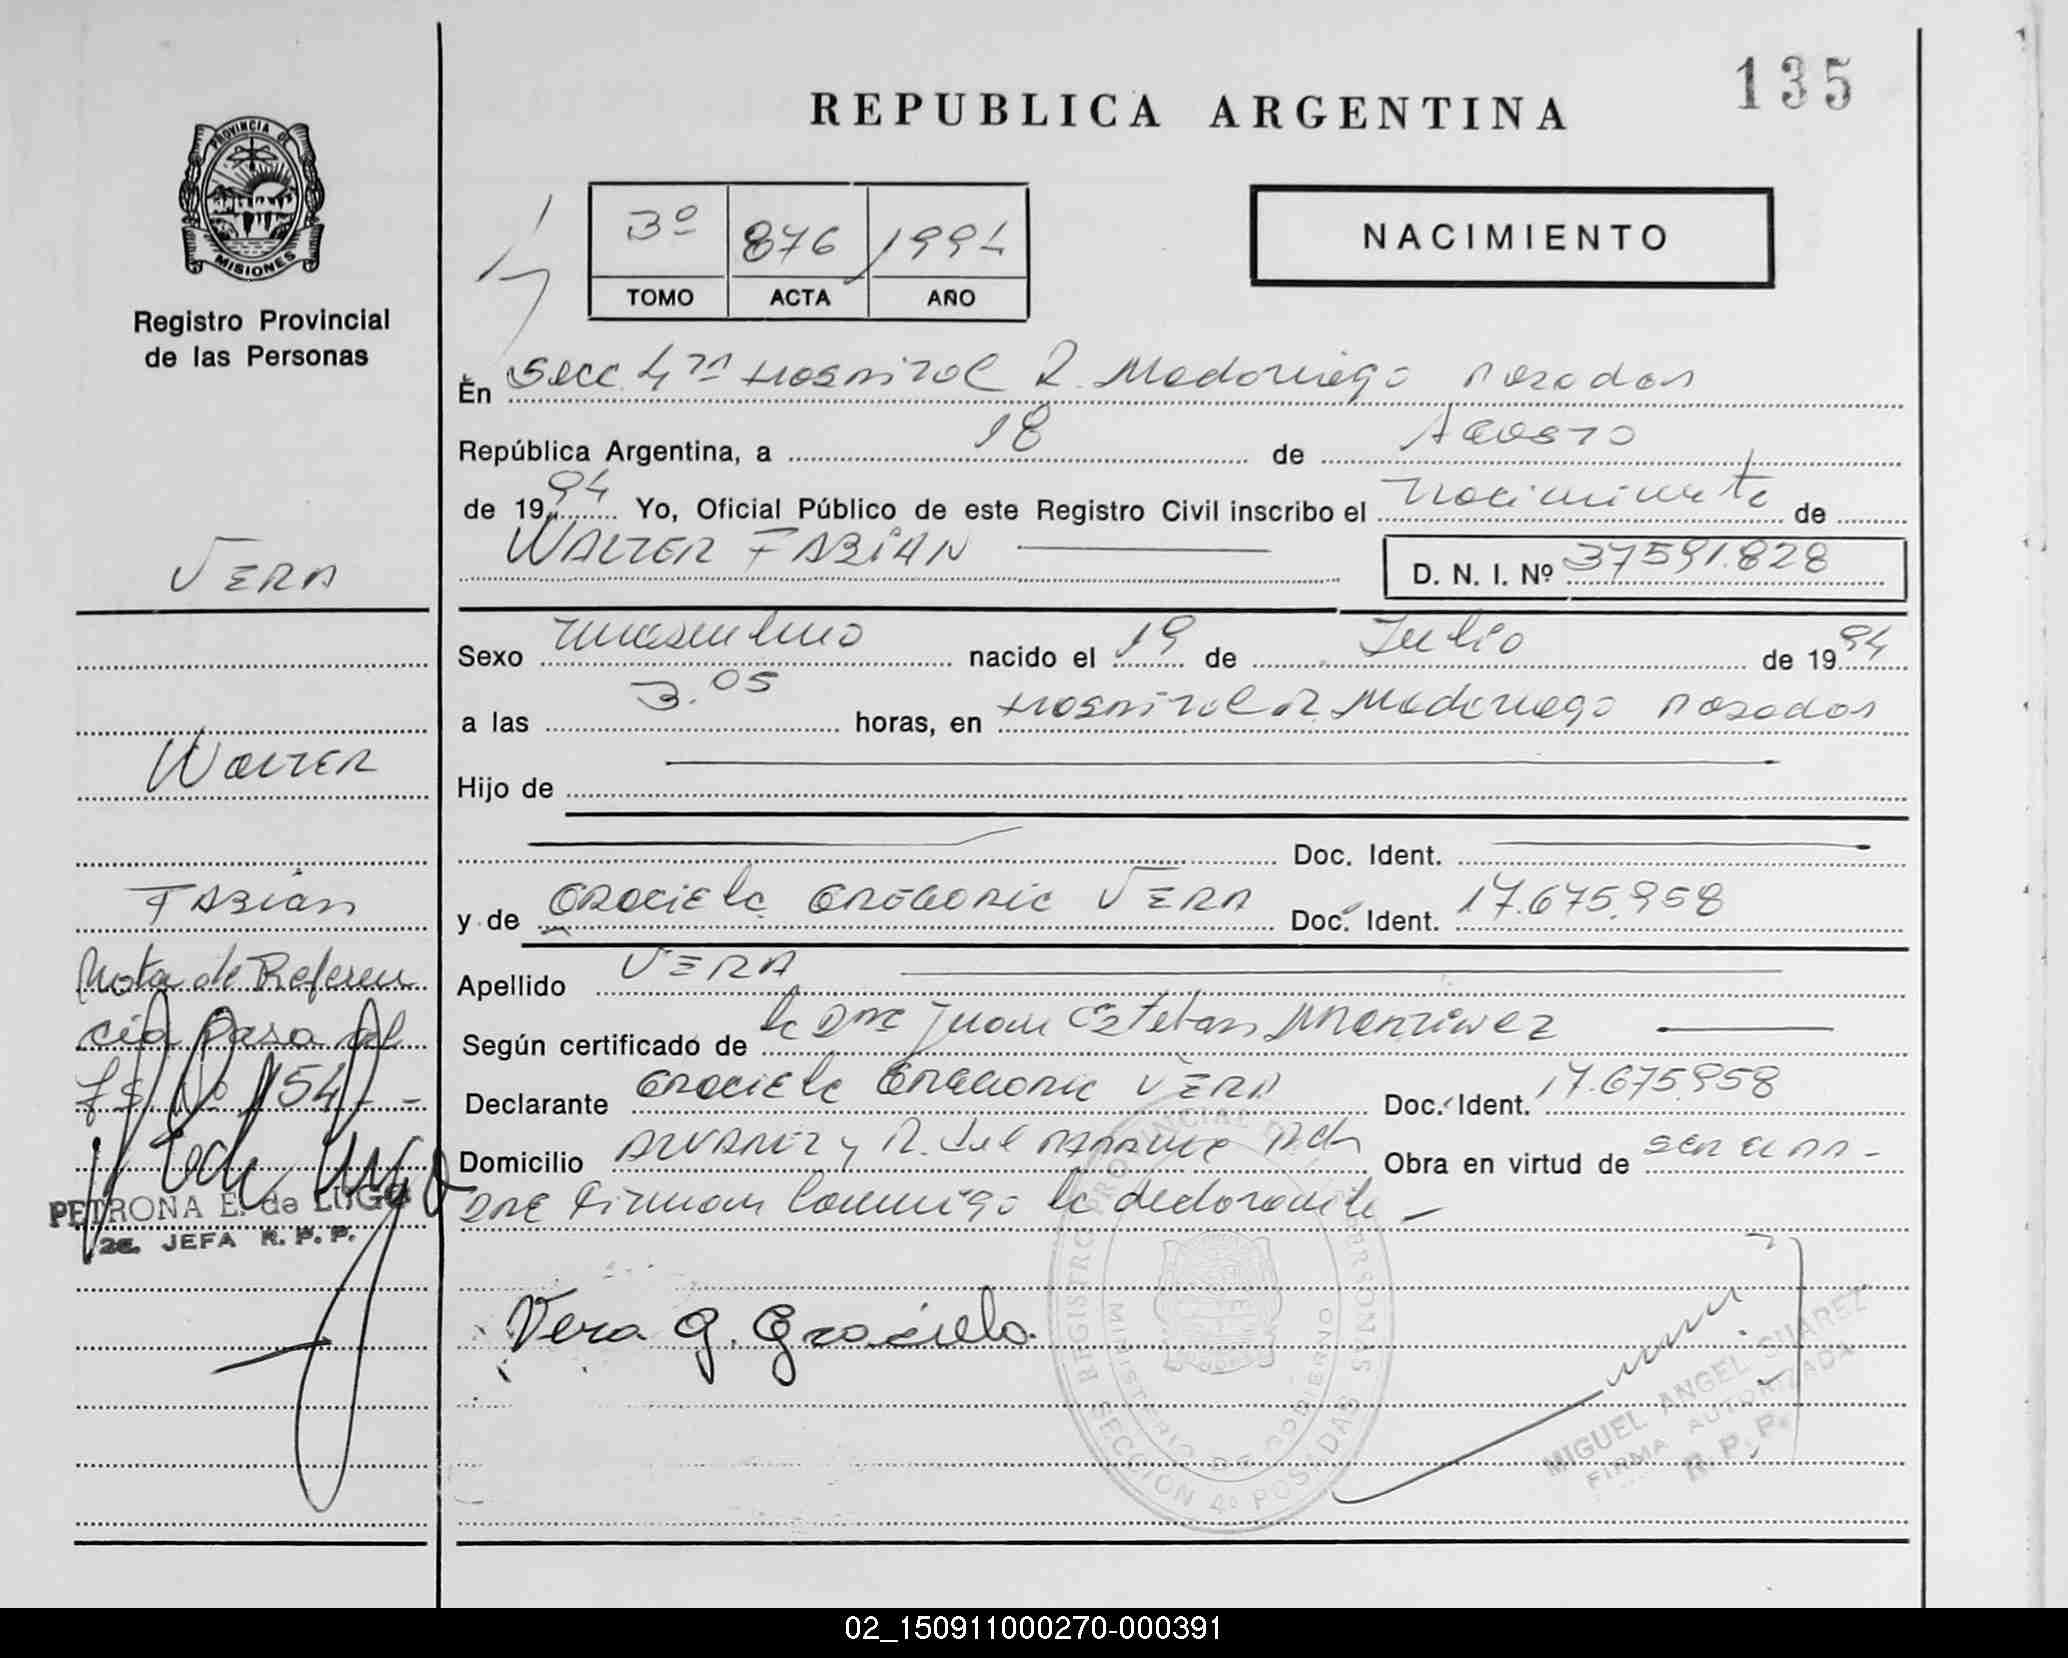 135
REPUBLICA ARGENTINA
PROVINCIA DE
MISIONES
Registro Provincial
de las Personas
3º 876 1994
TOMO ACTA AÑO
NACIMIENTO
En Secc 4ta Hospital R. Madariaga Posadas
República Argentina, a 18 de Agosto
de 1994 Yo, Oficial Público de este Registro Civil inscribo el nacimiento de
WALTER FABIAN
D. N. I. Nº 37591.828
VERA
Sexo masculino nacido el 19 de Julio de 1994
a las 3.05 horas, en Hospital R. Madariaga Posadas
WALTER
Hijo de
Doc. Ident.
FABIAN
y de GRACIELA GREGORIA VERA Doc. Ident. 17.675.958
Apellido VERA
Según certificado de la Dra Juan Esteban Martinez
Declarante GRACIELA GREGORIA VERA Doc. Ident. 17.675.958
Domicilio ALVAREZ y R. del PARQUE Pdas Obra en virtud de ser su ma-
dre Firman Conmigo la declarante
Nota de Referen
cia Pasa al
fs Nº 154
PETRONA E. de LUGO
2a. JEFA R. P. P.
Vera G. Graciela.
REGISTRO PROVINCIAL DE LAS PERSONAS
MINISTERIO DE GOBIERNO
SECCION 4º POSADAS
MIGUEL ANGEL SUAREZ
FIRMA AUTORIZADA
R. P. P.
02_150911000270-000391